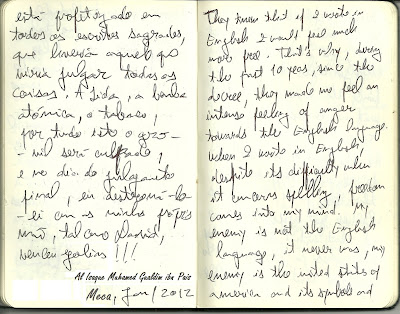 está profetizado em
todas as escrituras sagradas,
que haveria aquele q
viria julgar todas as
coisas. A Sida, a bomba
atómica, o tabaco,
por tudo isto o
será culpado,
e no dia do julgamento
final, eu
ei com as minhas próprias
mão, tal como David,
venceu golias!!!
Al Isaque Muhamed Gualdim ibn Paiz
Meca, Jan/2012
They know that if I wrote in
English I would feel much
more free. That's why, during
the last 10 years, since the
decree, they made me feel an
intense feeling of anger
towards the English language.
When I wrote in English
despite its difficulty when
it concerns spelling, freedom
comes into my mind. My
enemy is not the English
language, it never was, my
enemy is the united states of
america and its symbols and